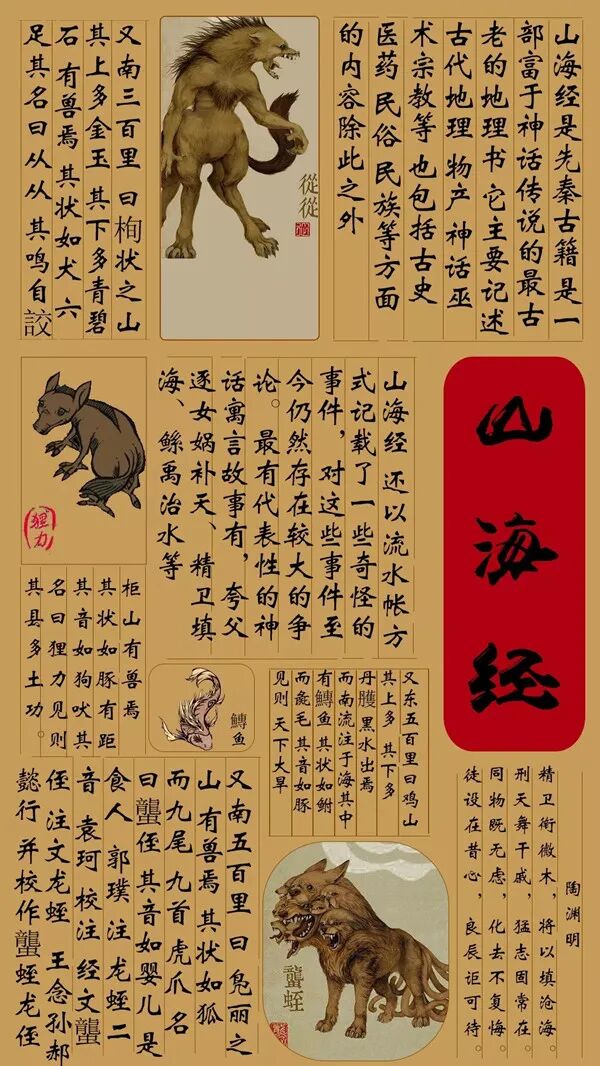 山海经是先秦古籍是一
部富于神话传说的最古
老的地理书它主要记述
古代地理 物产 神话巫
术宗教等 也包括古史
医药 民俗 民族等方面
的内容除此之外
從從
又南三百里 曰栒状之山
其上多金玉 其下多青碧
石 有兽焉 其状如犬 六
足其名曰从从 其鸣自詨
山海经
山海经 还以流水帐方
式记载了一些奇怪的
事件，对这些事件至
今仍然存在较大的争
论。最有代表性的神
话寓言故事有，夸父
逐女娲补天、精卫填
海、鲧禹治水等
狸力
柜山有兽焉
其状如豚有距
其音如狗吠其
名曰狸力见则
其县多土功。
又东五百里曰鸡山
其上多 其下多
丹雘 黑水出焉
而南流注于海其中
有鱄鱼 其状如鲋
而彘毛 其音如豚
见则 天下大旱
鱄鱼
陶渊明
精卫衔微木，将以填沧海。
刑天舞干戚，猛志固常在。
同物既无虑，化去不复悔。
徒设在昔心，良辰讵可待。
蠪蛭
又南五百里 曰凫丽之
山 有兽焉 其状如狐
而九尾 九首虎爪 名
曰蠪侄 其音如婴儿 是
食人 郭璞 注龙蛭二
音 袁珂 校注 经文蠪
侄 注文龙蛭 王念孙郝
懿行 并校作 蠪蛭龙侄